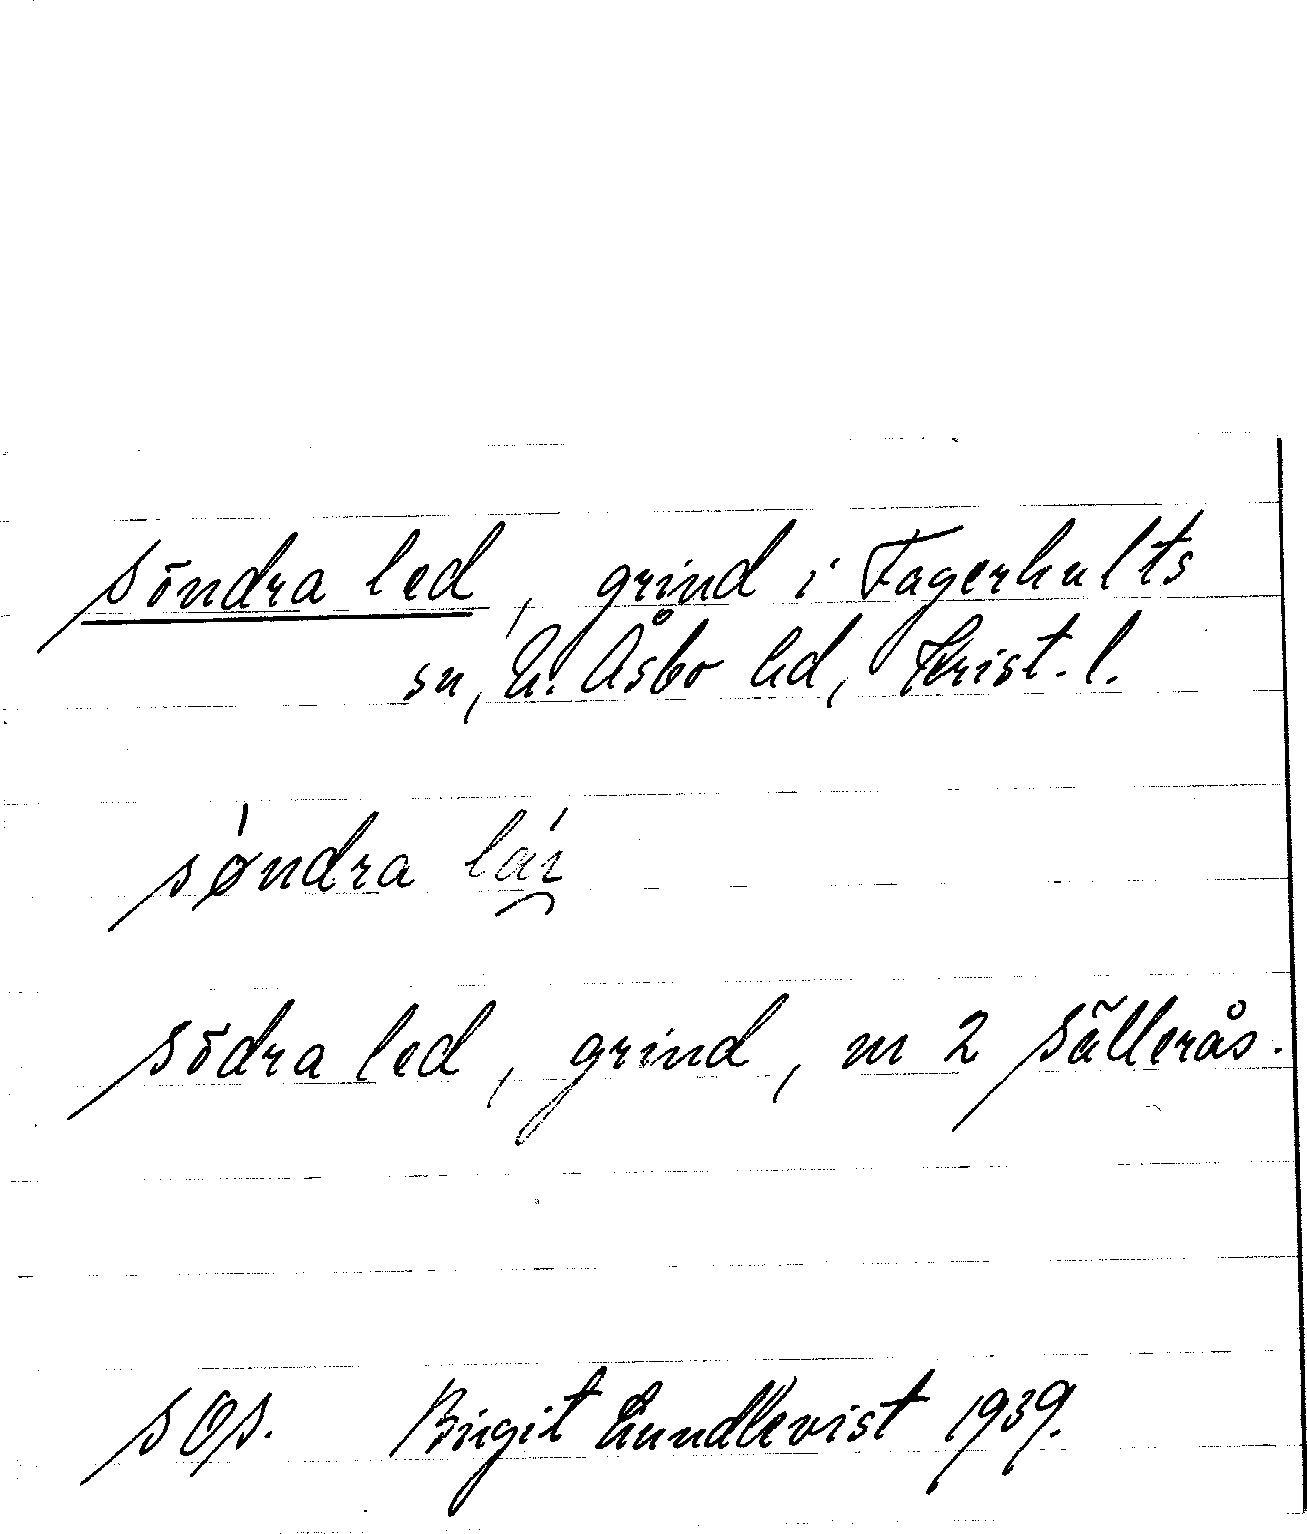 söndra led, grind i Fagerhults
sn, N. Åsbo hd, Krist. l.
søndra
södra led, grind, m 2 Sällerås.
Birgit Lundkvist 1939.